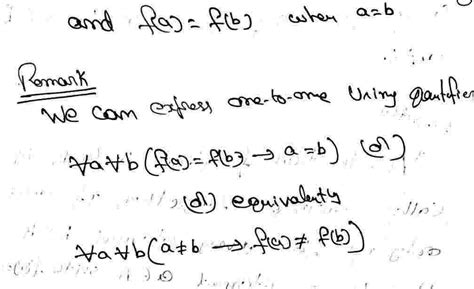 and f(a) = f(b) when a=b
Remark
We can express one-to-one Using quantifier
∀a∀b (f(a) = f(b) → a = b) (or)
(or) equivalently
∀a∀b (a ≠ b → f(a) ≠ f(b))